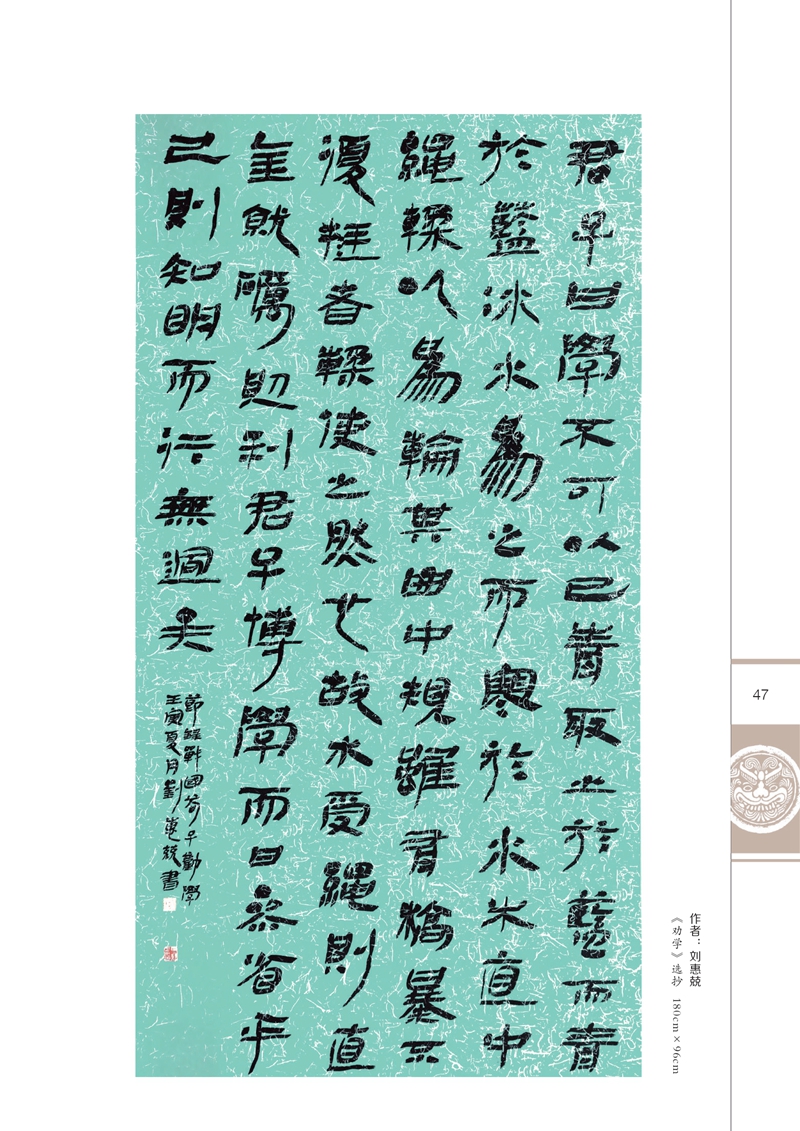 君子曰學不可以已青取之於藍而青
於藍冰水為之而寒於水木直中
繩輮以為輪其曲中規雖有槁暴不
復挺者輮使之然也故木受繩則直
金就礪則利君子博學而日參省乎
己則知明而行無過矣
節錄戰國荀子勸學
壬寅夏月劉惠兢書
47
作者：刘惠兢
《劝学》选抄 180cm×96cm